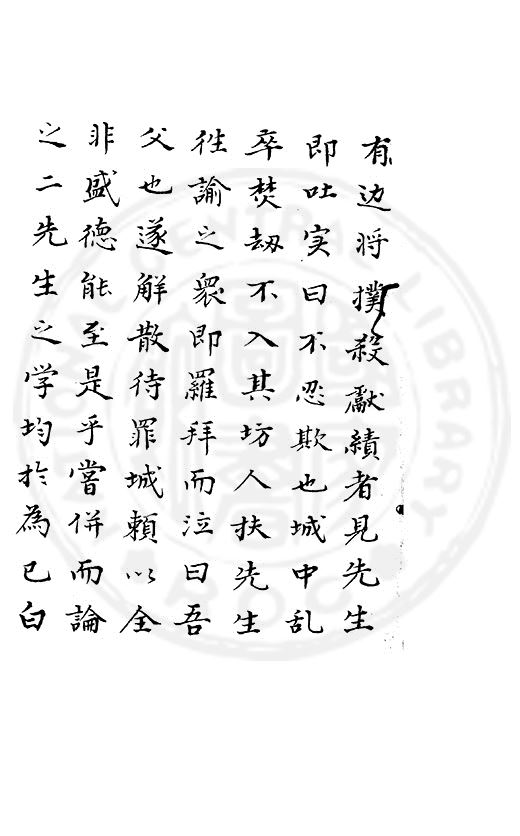 有边将撲殺獻績者見先生
即吐实曰不忍欺也城中乱
卒焚劫不入其坊人扶先生
徃諭之衆即羅拜而泣曰吾
父也遂解散待罪城頼以全
非盛德能至是乎嘗併而論
之二先生之学均於為已白
CENTRAL LIBRARY